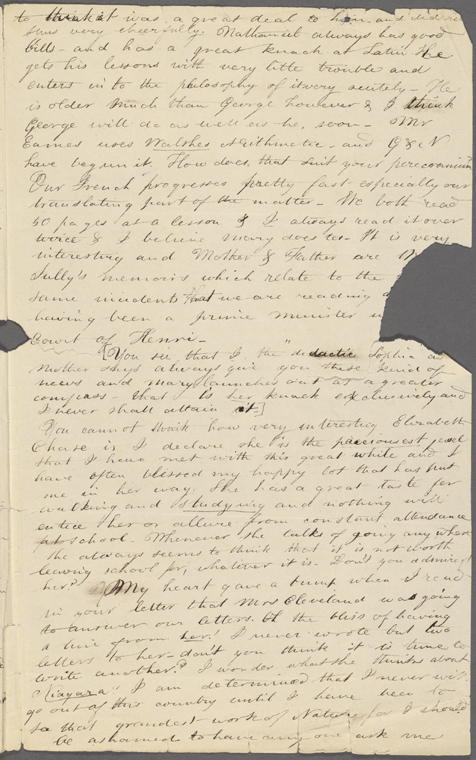 to think it was, a great deal to him, and
thus very cheerfully. Nathaniel always has good
bills - and has a great knack at Latin. He
gets his lessons with very little trouble and
enters in to the philosophy of it very acutely - He
is older much than George however & I think
George will do as well as he, soon - Mr
Eames uses Walshes Arithmetic - and G & N
have begun it. How does that suit your
Our French progresses pretty fast especially our
translating part of the matter - We both read
50 pages at a lesson & I always read it over
twice & I believe Mary does too - It is very
interesting and Mother & Father are
Sully's memoirs which relate to the
same incidents that we are reading
having been a prime minister
Court of Henri -
[You see that I, the "didactic Sophia" as
Mother says always give you these kind of
news and Mary launches out at a greater
compass - that is her knack exclusively and
I never shall attain it.]
You cannot think how very interesting Elizabeth
Chase is I declare she is the preciousest jewel
that I have met with this great while and I
have often blessed my happy lot that has put
me in her way. She has a great taste for
walking and studying and nothing will
entice her or allure from constant attendance
at school. Whenever she talks of going any where
she always seems to think that it is not worth
leaving school for, whatever it is. Don't you admire
her? My heart gave a bump when I read
in your letter that Mrs Cleveland was going
to answer our letters. Oh the bliss of having
a line from her! I never wrote but two
letters to her - don't you think it is time to
write another? I wonder what she thinks about
Niagara! I am determined that I never will
go out of this country until I have been to
see that grandest work of Nature, for I should
be ashamed to have any one ask me